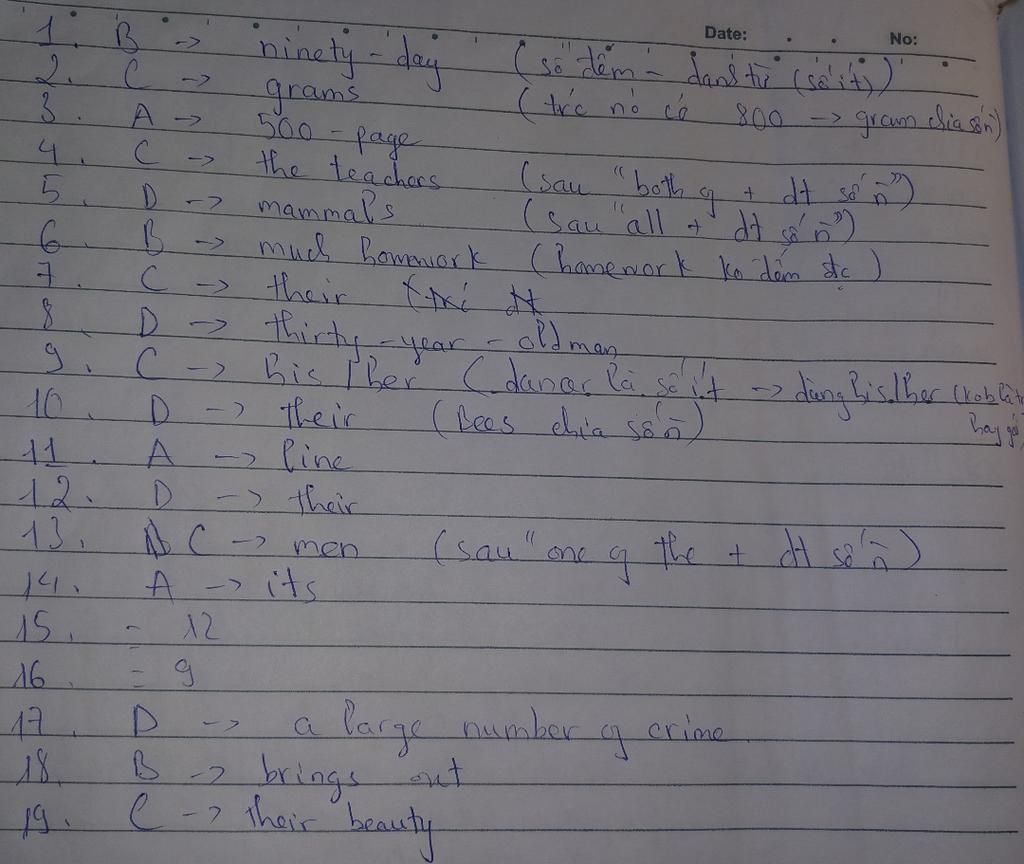 Date: No:
1. B -> ninety-day (số đếm - danh từ (số ít))
2. C -> grams (trc nó có 800 -> gram chia số ñ)
3. A -> 500-page
4. C -> the teachers (sau "both of + dt số ñ")
5. D -> mammals (sau "all + dt số ñ")
6. B -> much homework (homework ko đếm đc)
7. C -> their
8. D -> thirty-year-old man
9. C -> his/her (dancer là số ít -> dùng his/her (kob là tr
hay gái
10. D -> their (Bees chia số ñ)
11. A -> line
12. D -> their
13. C -> men (sau "one of the + dt số ñ)
14. A -> its
15. = 12
16. = 9
17. D -> a large number of crime
18. B -> brings out
19. C -> their beauty